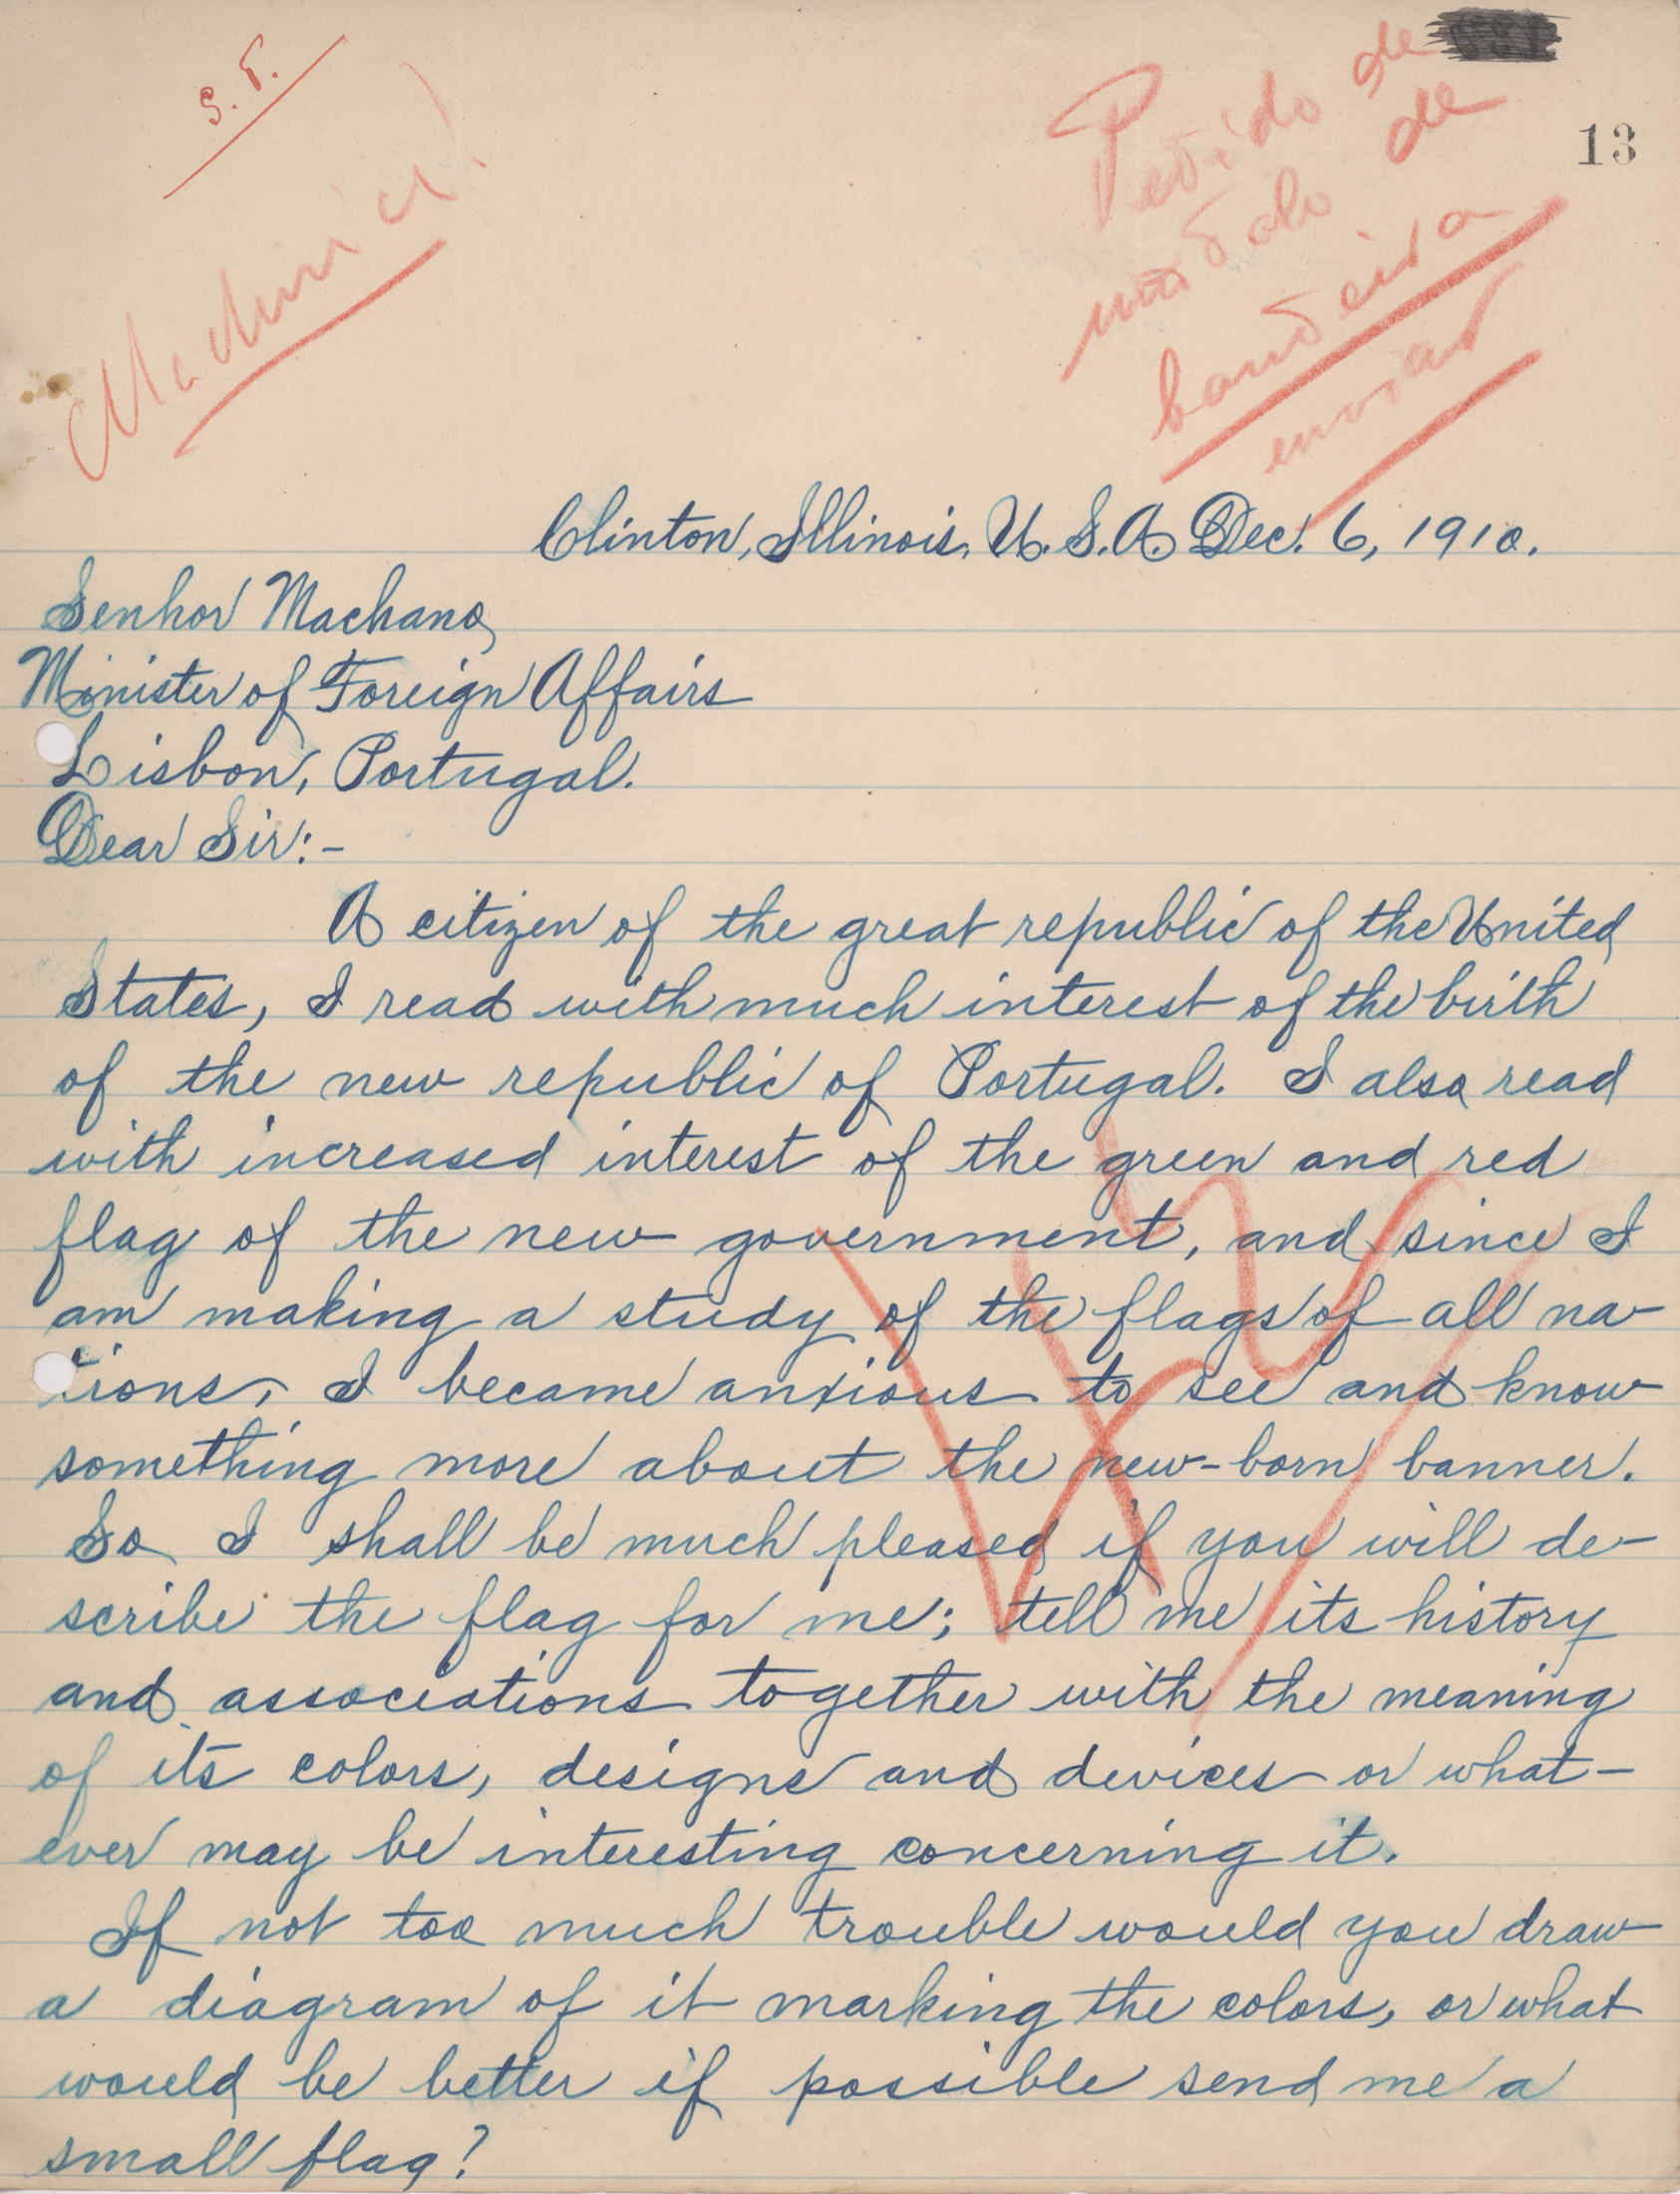 S. P.
13
Pedido de
modelo de
bandeira
enviar
Clinton, Illinois, U. S. A. Dec. 6, 1910.
Senhor Machano,
Minister of Foreign Affairs
Lisbon, Portugal.
Dear Sir:-
A citizen of the great republic of the United
States, I read with much interest of the birth
of the new republic of Portugal. I also read
with increased interest of the green and red
flag of the new government, and since I
am making a study of the flags of all na-
tions, I became anxious to see and know
something more about the new-born banner.
So I shall be much pleased if you will de-
scribe the flag for me; tell me its history
and associations together with the meaning
of its colors, designs and devices or what-
ever may be interesting concerning it.
If not too much trouble would you draw
a diagram of it marking the colors, or what
would be better if possible send me a
small flag?